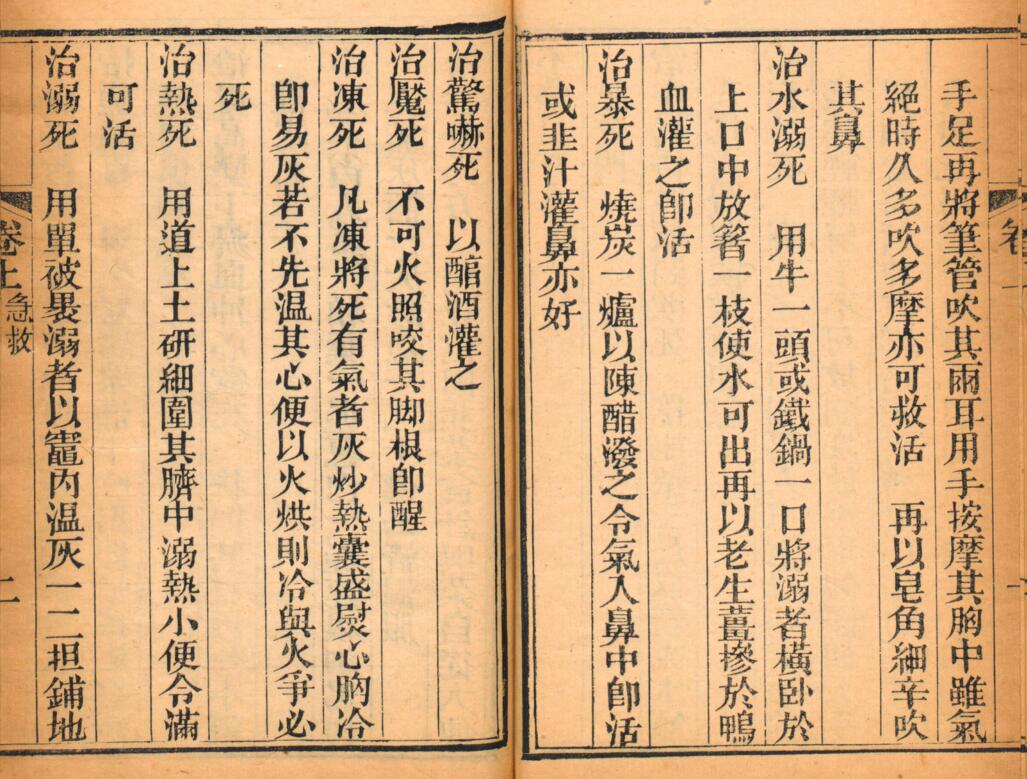 手足再將筆管吹其兩耳用手按摩其胸中雖氣
絕時久多吹多摩亦可救活　再以皂角細辛吹
其鼻
治水溺死　用牛一頭或鐵鍋一口將溺者橫卧於
上口中放筯一枝使水可出再以老生薑摻於鴨
血灌之卽活
治暴死　燒炭一爐以陳醋潑之令氣入鼻中卽活
或韭汁灌鼻亦好
治驚嚇死　以醋酒灌之
治魘死　不可火照咬其脚根卽醒
治凍死　凡凍將死有氣者灰炒熱囊盛熨心胸冷
卽易灰若不先温其心便以火烘則冷與火爭必
死
治熱死　用道上土研細圍其臍中溺熱小便令滿
可活
治溺死　用單被褁溺者以竈内温灰一二担鋪地
卷上
急救
二